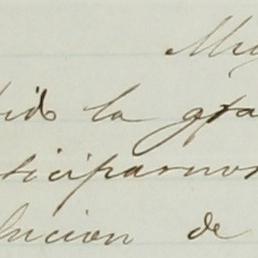 Muy
ido la gra
ticiparnos
lucion de